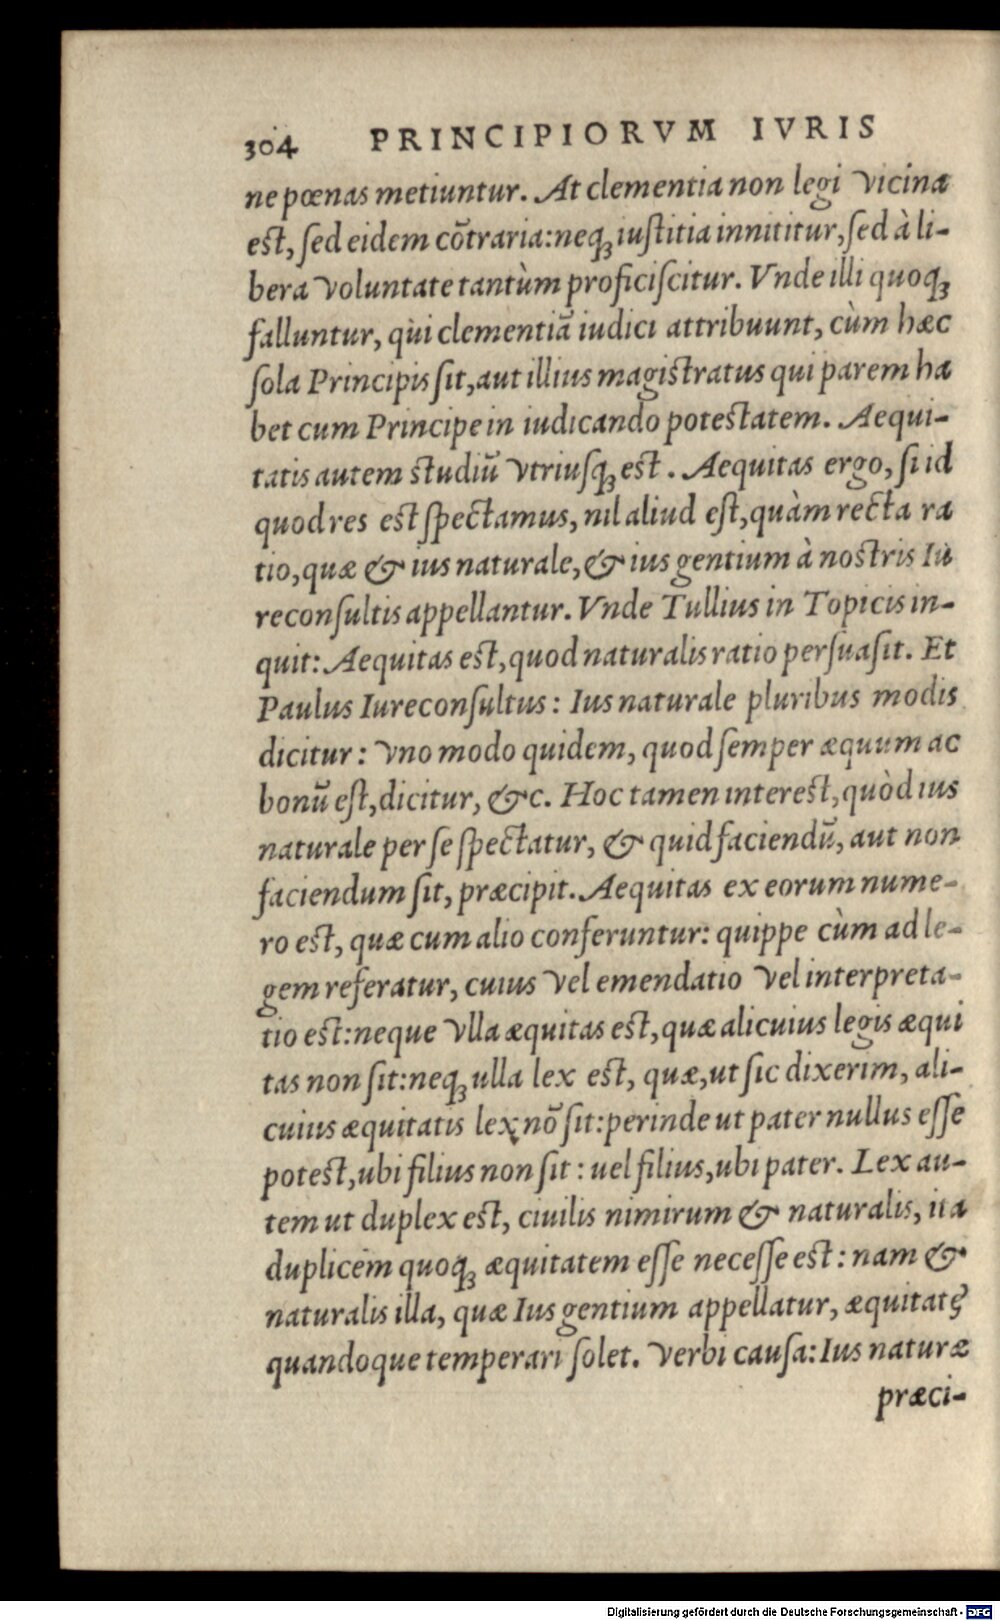 304 PRINCIPIORVM IVRIS
ne pœnas metiuntur. At clementia non legi vicina
est, sed eidem cõtraria: neqꝫ iustitia innititur, sed à li-
bera voluntate tantùm proficiscitur. Vnde illi quoqꝫ
falluntur, qùi clementiã iudici attribuunt, cùm hæc
sola Principis sit, aut illius magistratus qui parem ha
bet cum Principe in iudicando potestatem. Aequi-
tatis autem studiũ vtriusqꝫ est. Aequitas ergo, si id
quod res est spectamus, nil aliud est, quàm recta ra
tio, quæ & ius naturale, & ius gentium à nostris Iu
reconsultis appellantur. Vnde Tullius in Topicis in-
quit: Aequitas est, quod naturalis ratio persuasit. Et
Paulus Iureconsultus: Ius naturale pluribus modis
dicitur: vno modo quidem, quod semper æquum ac
bonũ est, dicitur, &c. Hoc tamen interest, quòd ius
naturale per se spectatur, & quid faciendũ, aut non
faciendum sit, præcipit. Aequitas ex eorum nume-
ro est, quæ cum alio conferuntur: quippe cùm ad le-
gem referatur, cuius vel emendatio vel interpreta-
tio est: neque vlla æquitas est, quæ alicuius legis æqui
tas non sit: neqꝫ ulla lex est, quæ, ut sic dixerim, ali-
cuius æquitatis lex nõ sit: perinde ut pater nullus esse
potest, ubi filius non sit: uel filius, ubi pater. Lex au-
tem ut duplex est, ciuilis nimirum & naturalis, ita
duplicem quoqꝫ æquitatem esse necesse est: nam &
naturalis illa, quæ Ius gentium appellatur, æquitatę
quandoque temperari solet. Verbi causa: Ius naturæ
præci-
Digitalisierung gefördert durch die Deutsche Forschungsgemeinschaft - DFG